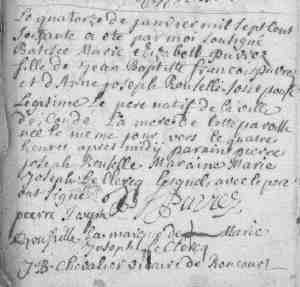 Le quatorze de janvier mil sept cent
soixante a été par moi soutigné
Batisée Marie Elisabeth Puvrez
fille de Jean Baptiste françois Puvrez
et d'Anne Joseph Rousselle son épouse
Legitime Le pere natif de la ville
de Condé La mere de cette paroisse
née le meme jour vers les quatre
heures après midy parain pierre
joseph Rouselle Maraine Marie
Joseph Le Clercq Lesquels avec le pere
ont signé
Puvrez
pierre joseph
Rouselle La marque de Marie
Joseph Le Clercq
J B Chevalier vicaire de Roncourt